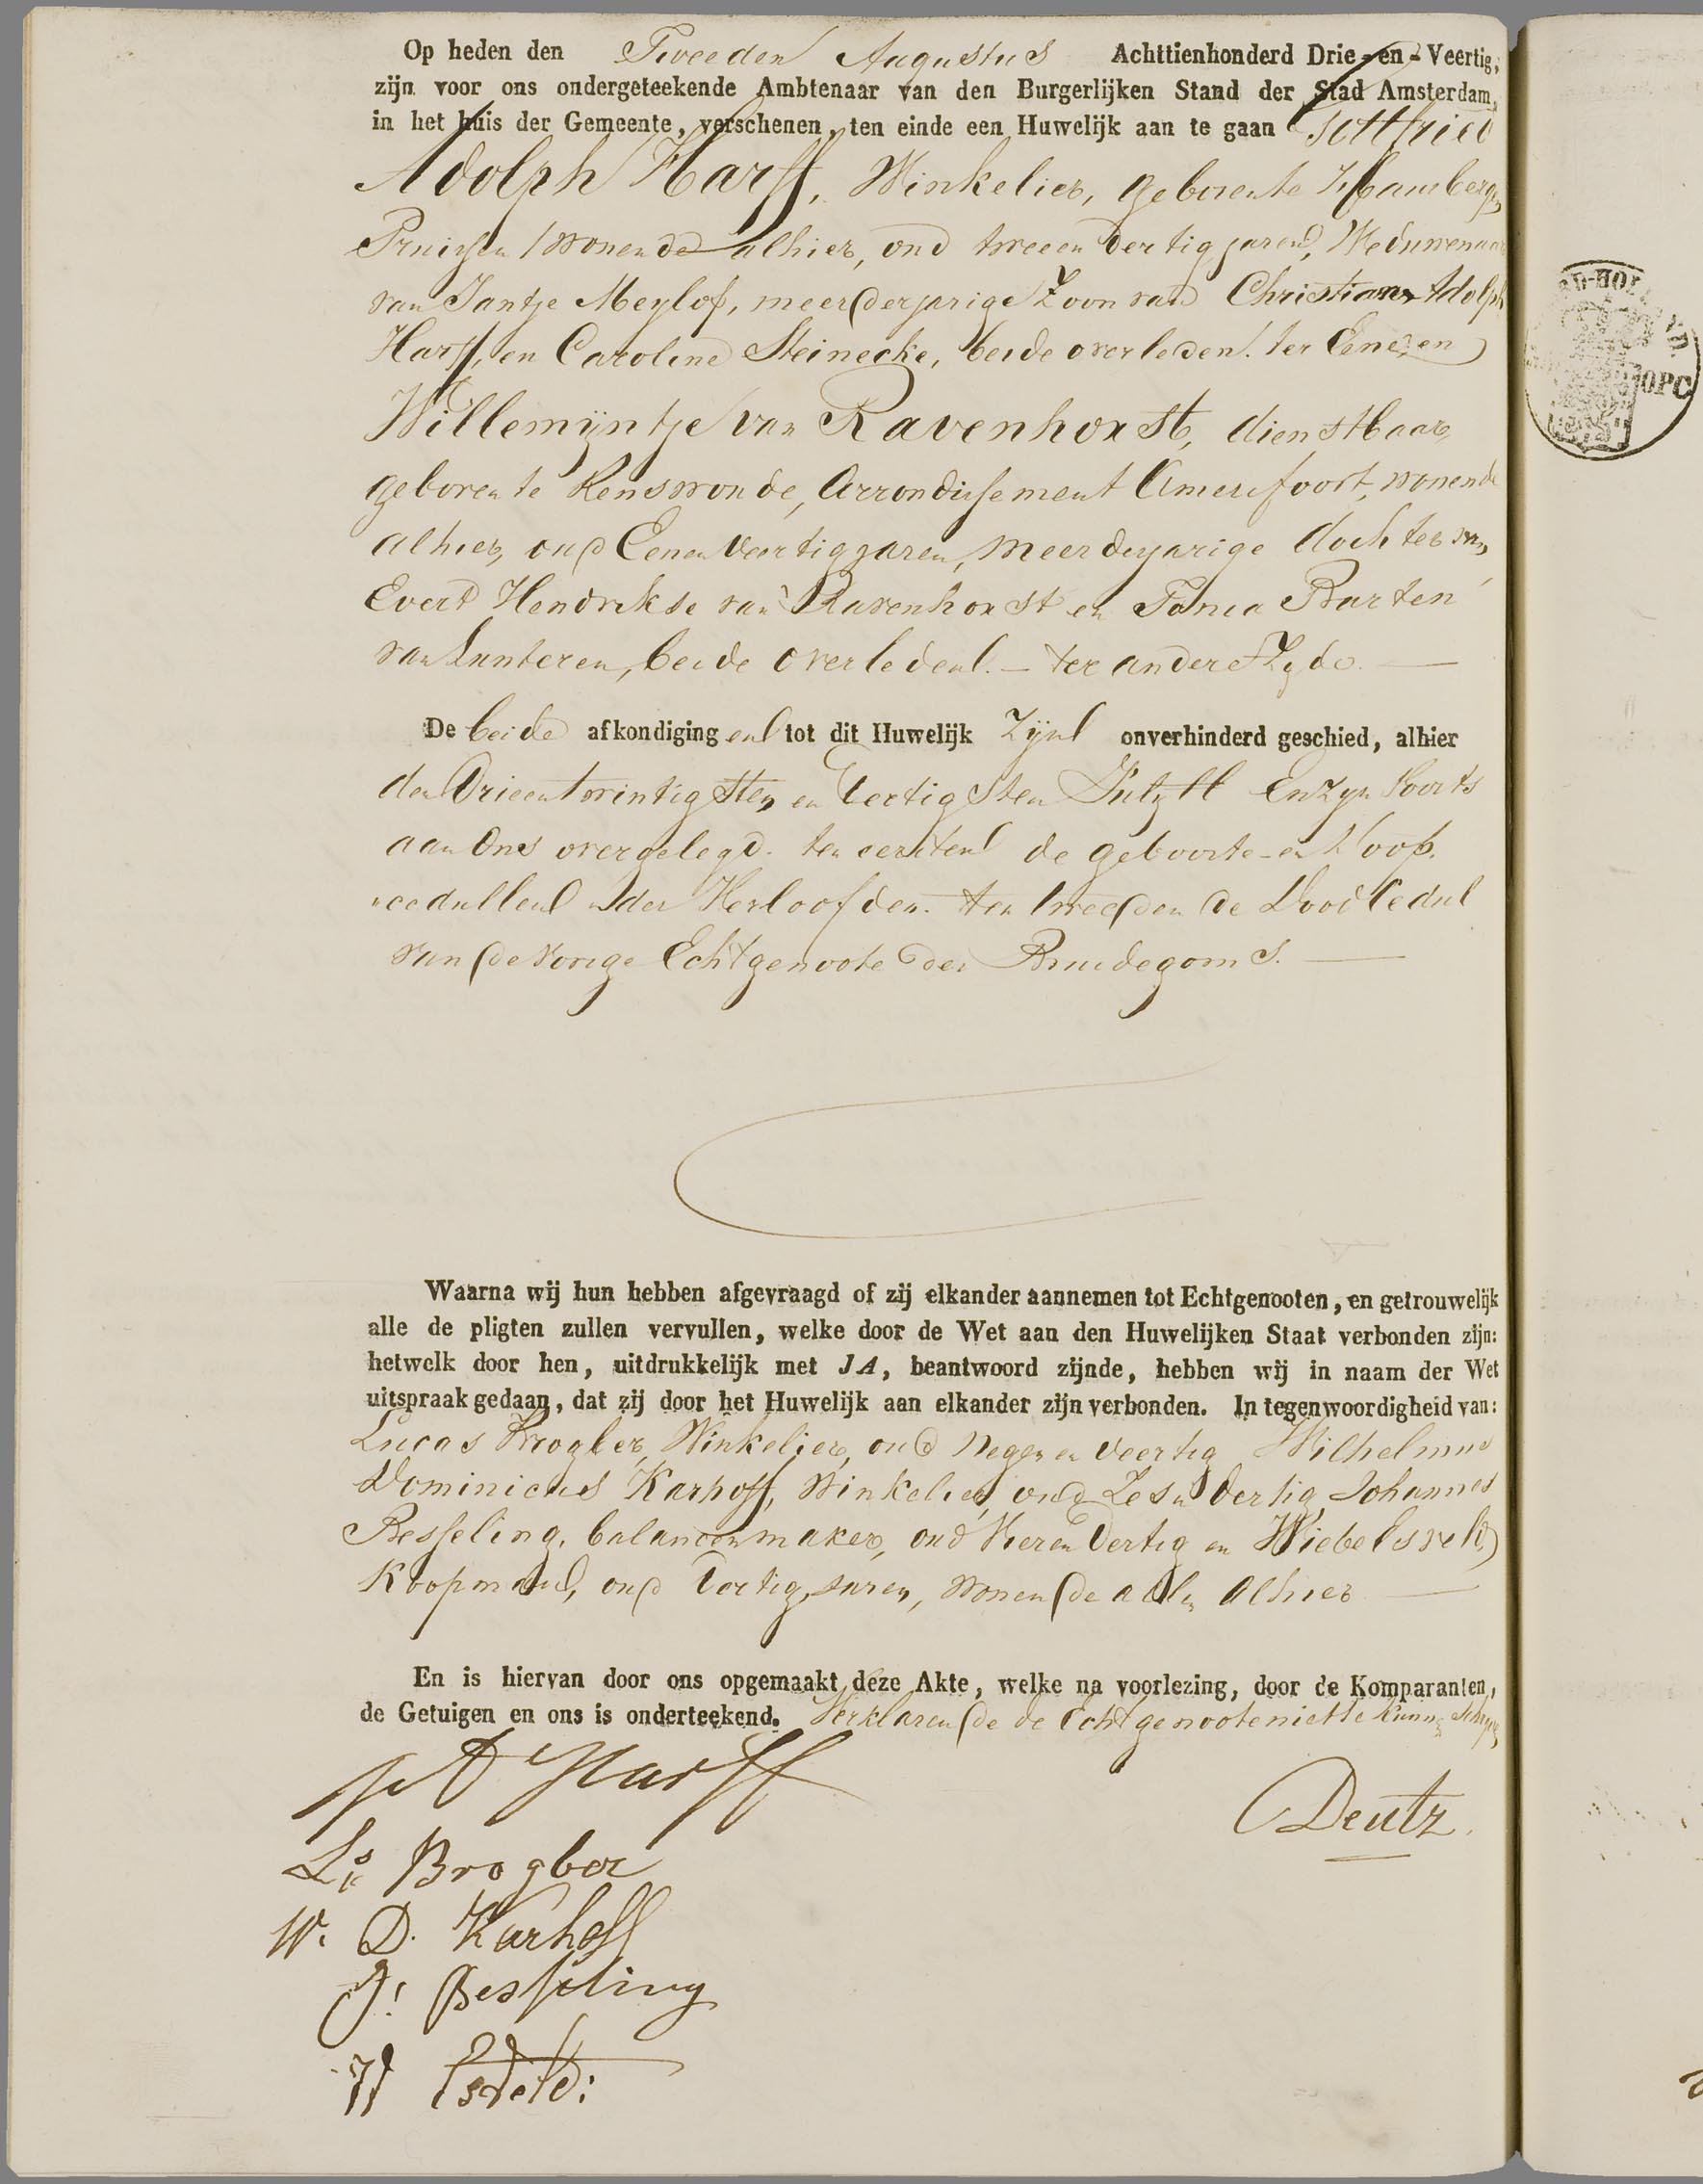 Op heden den Tweeden Augustus Achttienhonderd Drie-en-Veertig,
zijn voor ons ondergeteekende Ambtenaar van den Burgerlijken Stand der Stad Amsterdam,
in het huis der Gemeente, verschenen, ten einde een Huwelijk aan te gaan Gottfried
Adolph Harff, Winkelier, geboren te
Pruissen / wonende alhier, oud tweeendertig jaren, Weduwenaar
van Jantje Meylof, meerderjarige Zoon van Christian Adolph
Harff, en Caroline Steinecke, beide overleden. ter Eene, en
Willemijntje van Ravenhorst, dienstbaar,
geboren te Renswoude, Arrondissement Amersfoort, wonende
alhier, oud Eenenveertig jaren, meerderjarige dochter van
Evert Hendrikse van Ravenhorst en Barten
van Lunteren, beide overleden. - ter andere Zyde.
De beide afkondigingen tot dit Huwelijk Zijn onverhinderd geschied, alhier
den Drieentwintigsten en Dertigsten July ll En zyn Voorts
aan Ons overgelegd. ten eersten de geboorte- en doop-
cedullen der Verloofden. ten tweeden de Doodcedul
van de vorige Echtgenoote des Bruidegoms.
Waarna wij hun hebben afgevraagd of zij elkander aannemen tot Echtgenooten, en getrouwelijk
alle de pligten zullen vervullen, welke door de Wet aan den Huwelijken Staat verbonden zijn:
hetwelk door hen, uitdrukkelijk met JA, beantwoord zijnde, hebben wij in naam der Wet
uitspraak gedaan, dat zij door het Huwelijk aan elkander zijn verbonden. In tegenwoordigheid van:
Lucas Brogber, Winkelier, oud Negen en veertig Wilhelmus
Dominicus Karhoff, Winkelier, oud Zesendertig Johannes
Besseling, balancenmaker, oud Vierendertig en Wiebe Esveld
Koopman, oud Dertig Jaren, wonende allen Alhier
En is hiervan door ons opgemaakt deze Akte, welke na voorlezing, door de Komparanten,
de Getuigen en ons is onderteekend. Verklarende de Echtgenoote niet te kunnen Schryven
Harff
Deutz.
Ls Brogber
W. D. Karhoff
J: Besseling
W Esveld: